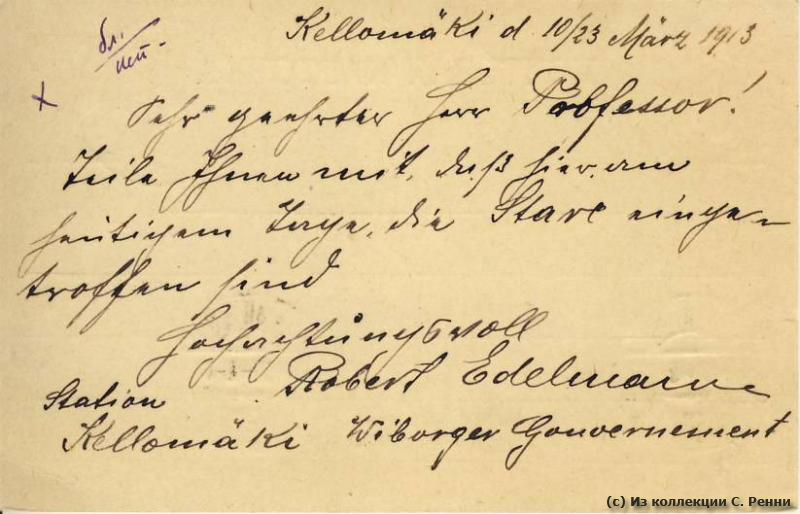 Kellomäki d 10/23 März 1913
бл.
пет.
x
Sehr geehrter Herr Probfessor!
Teile Ihnen mit, daß hier am
heutigem Tage, die Stare einge-
troffen sind
Hochachtungsvoll
Robert Edelmann
Station
Kellomäki Wiborger Gouvernement
(c) Из коллекции С. Ренни